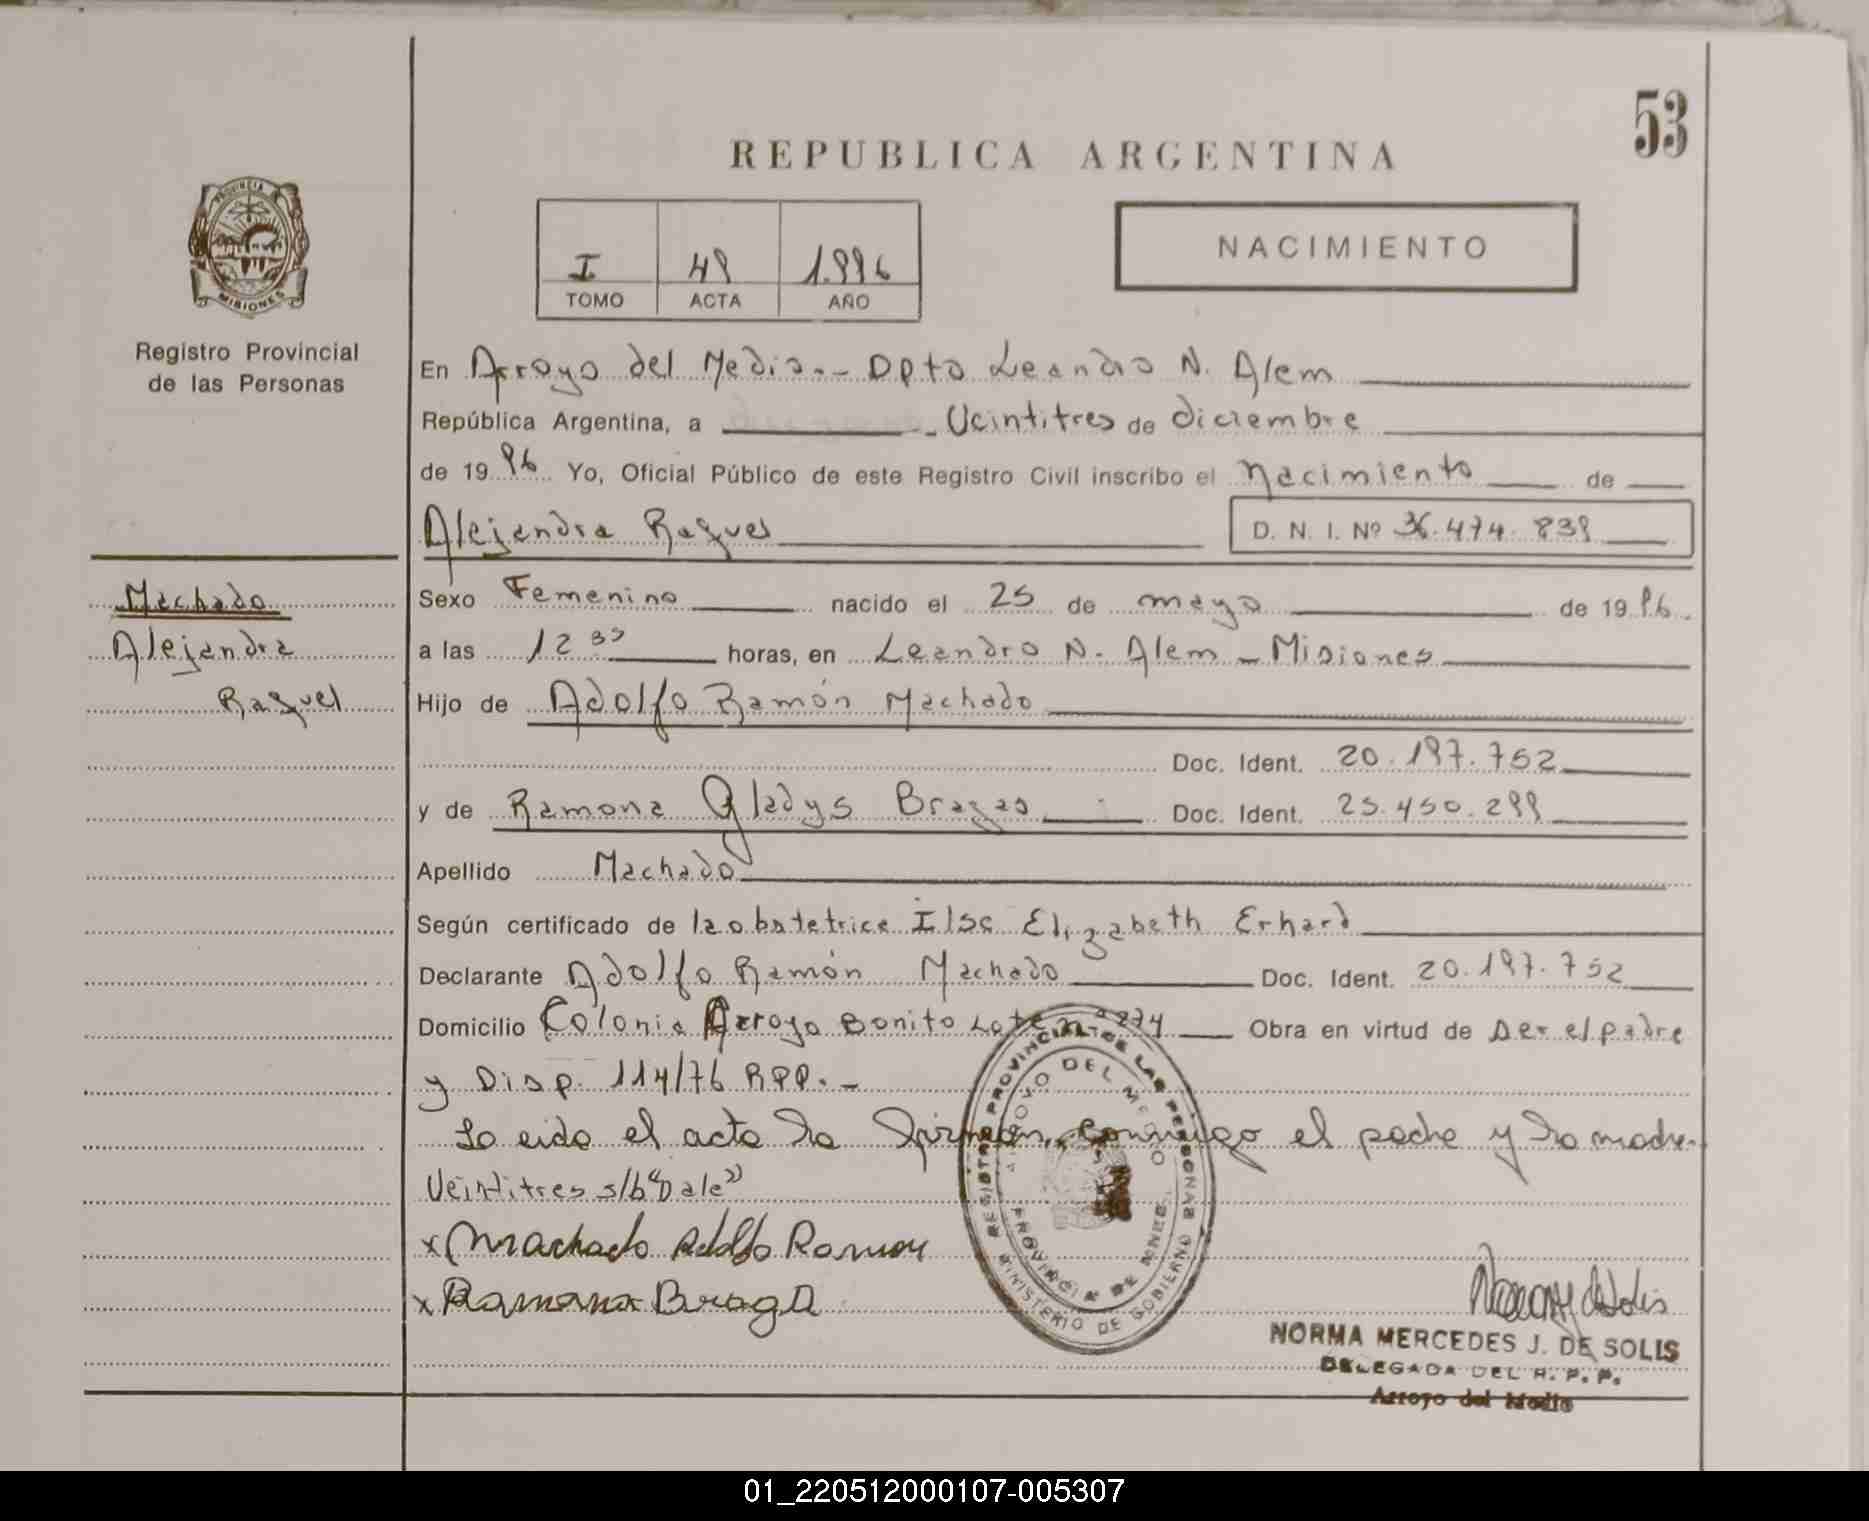 53
REPUBLICA ARGENTINA
PROVINCIA DE
MISIONES
Registro Provincial
de las Personas
I 49 1.996
TOMO ACTA AÑO
NACIMIENTO
En Arroyo del Medio.- Dpto Leandro N. Alem
República Argentina, a Veintitres de diciembre
de 1996 Yo, Oficial Público de este Registro Civil inscribo el nacimiento de
Alejandra Raquel D. N. I. Nº 36.474.839
Machado
Alejandra
Raquel
Sexo Femenino nacido el 25 de mayo de 1996.
a las 12 35 horas, en Leandro N. Alem - Misiones
Hijo de Adolfo Ramón Machado
Doc. Ident. 20.197.752
y de Ramona Gladys Bragas Doc. Ident. 25.450.299
Apellido Machado
Según certificado de la obstetrice Ilse Elizabeth Erhard
Declarante Adolfo Ramón Machado Doc. Ident. 20.197.752
Domicilio Colonia Arroyo Bonito Lote nº 274 Obra en virtud de ser el padre
y Disp. 114/76 RPP.-
Leida el acta la firman, conmigo el padre y la madre.
Veintitres s/b "Vale"
x Machado Adolfo Ramon
x Ramona Braga
REGISTRO PROVINCIAL DE LAS PERSONAS
MINISTERIO DE GOBIERNO
ARROYO DEL MEDIO
PROVINCIA DE MNES.
NORMA MERCEDES J. DE SOLIS
DELEGADA DEL R. P. P.
Arroyo del Medio
01_220512000107-005307